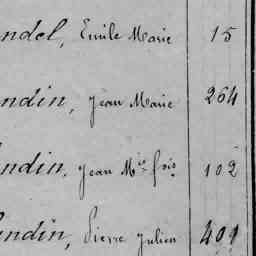 ndel, Emile Marie 15
ndin, Jean Marie 264
ndin, Jean Mie frois 102
ndin, Pierre Julien 401